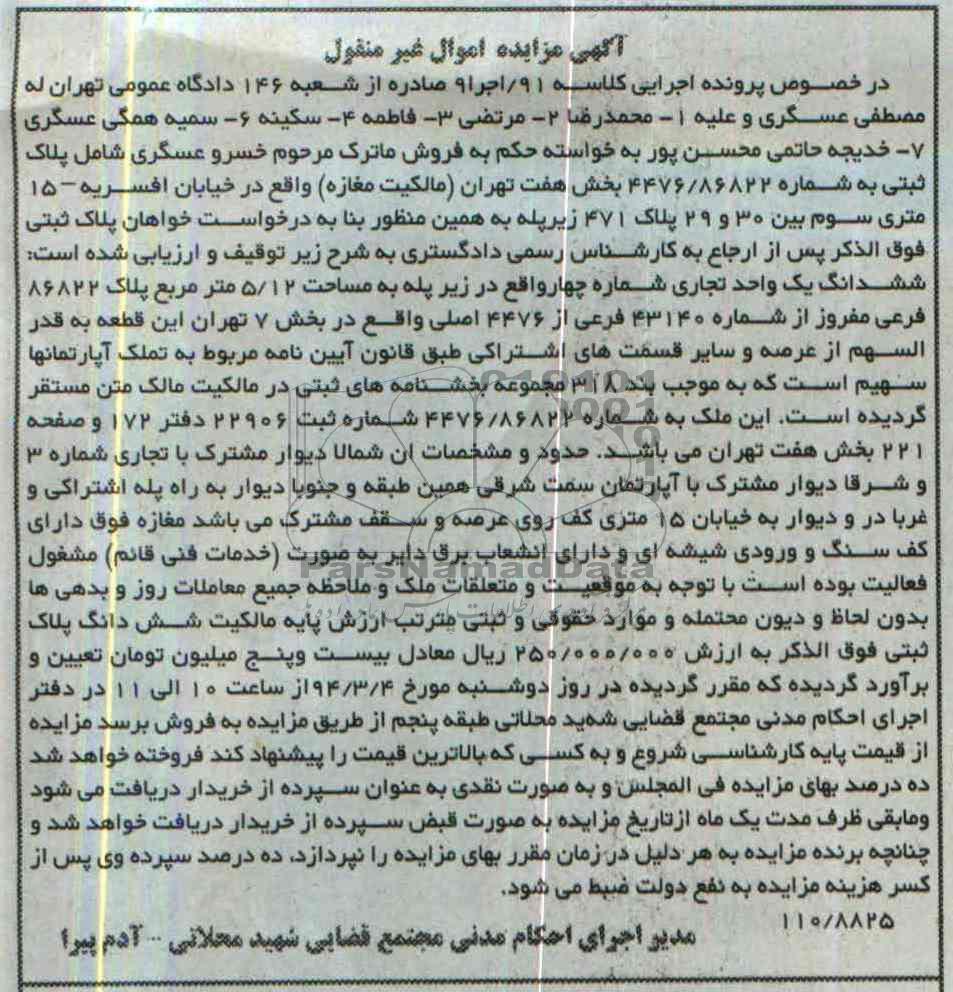 آگهی مزایده اموال غیر منقول
در خصوص پرونده اجرایی کلاسه ۹۱/اجرا۹ صادره از شعبه ۱۴۶ دادگاه عمومی تهران له
مصطفی عسگری و علیه ۱- محمدرضا ۲- مرتضی ۳- فاطمه ۴- سکینه ۶- سمیه همگی عسگری
۷- خدیجه حاتمی محسن پور به خواسته حکم به فروش ماترک مرحوم خسرو عسگری شامل پلاک
ثبتی به شماره ۴۴۷۶/۸۶۸۲۲ بخش هفت تهران (مالکیت مغازه) واقع در خیابان افسریه – ۱۵
متری سوم بین ۳۰ و ۲۹ پلاک ۴۷۱ زیرپله به همین منظور بنا به درخواست خواهان پلاک ثبتی
فوق الذکر پس از ارجاع به کارشناس رسمی دادگستری به شرح زیر توقیف و ارزیابی شده است:
ششدانگ یک واحد تجاری شماره چهارواقع در زیر پله به مساحت ۵/۱۲ متر مربع پلاک ۸۶۸۲۲
فرعی مفروز از شماره ۴۳۱۴۰ فرعی از ۴۴۷۶ اصلی واقع در بخش ۷ تهران این قطعه به قدر
السهم از عرصه و سایر قسمت های اشتراکی طبق قانون آیین نامه مربوط به تملک آپارتمانها
سهیم است که به موجب بند ۳۱۸ مجموعه بخشنامه های ثبتی در مالکیت مالک متن مستقر
گردیده است. این ملک به شماره ۴۴۷۶/۸۶۸۲۲ شماره ثبت ۲۲۹۰۶ دفتر ۱۷۲ و صفحه
۲۲۱ بخش هفت تهران می باشد. حدود و مشخصات ان شمالا دیوار مشترک با تجاری شماره ۳
و شرقا دیوار مشترک با آپارتمان سمت شرقی همین طبقه و جنوبا دیوار به راه پله اشتراکی و
غربا در و دیوار به خیابان ۱۵ متری کف روی عرصه و سقف مشترک می باشد مغازه فوق دارای
کف سنگ و ورودی شیشه ای و دارای انشعاب برق دایر به صورت (خدمات فنی قائم) مشغول
فعالیت بوده است با توجه به موقعیت و متعلقات ملک و ملاحظه جمیع معاملات روز و بدهی ها
بدون لحاظ و دیون محتمله و موارد حقوقی و ثبتی مترتب ارزش پایه مالکیت شش دانگ پلاک
ثبتی فوق الذکر به ارزش ۲۵۰/۰۰۰/۰۰۰ ریال معادل بیست وپنج میلیون تومان تعیین و
برآورد گردیده که مقرر گردیده در روز دوشنبه مورخ ۹۴/۳/۴از ساعت ۱۰ الی ۱۱ در دفتر
اجرای احکام مدنی مجتمع قضایی شهید محلاتی طبقه پنجم از طریق مزایده به فروش برسد مزایده
از قیمت پایه کارشناسی شروع و به کسی که بالاترین قیمت را پیشنهاد کند فروخته خواهد شد
ده درصد بهای مزایده فی المجلس و به صورت نقدی به عنوان سپرده از خریدار دریافت می شود
ومابقی ظرف مدت یک ماه ازتاریخ مزایده به صورت قبض سپرده از خریدار دریافت خواهد شد و
چنانچه برنده مزایده به هر دلیل در زمان مقرر بهای مزایده را نپردازد، ده درصد سپرده وی پس از
کسر هزینه مزایده به نفع دولت ضبط می شود.
۱۱۰/۸۸۲۵
مدیر اجرای احکام مدنی مجتمع قضایی شهید محلاتی -- آدم پیرا
ParsNamadData